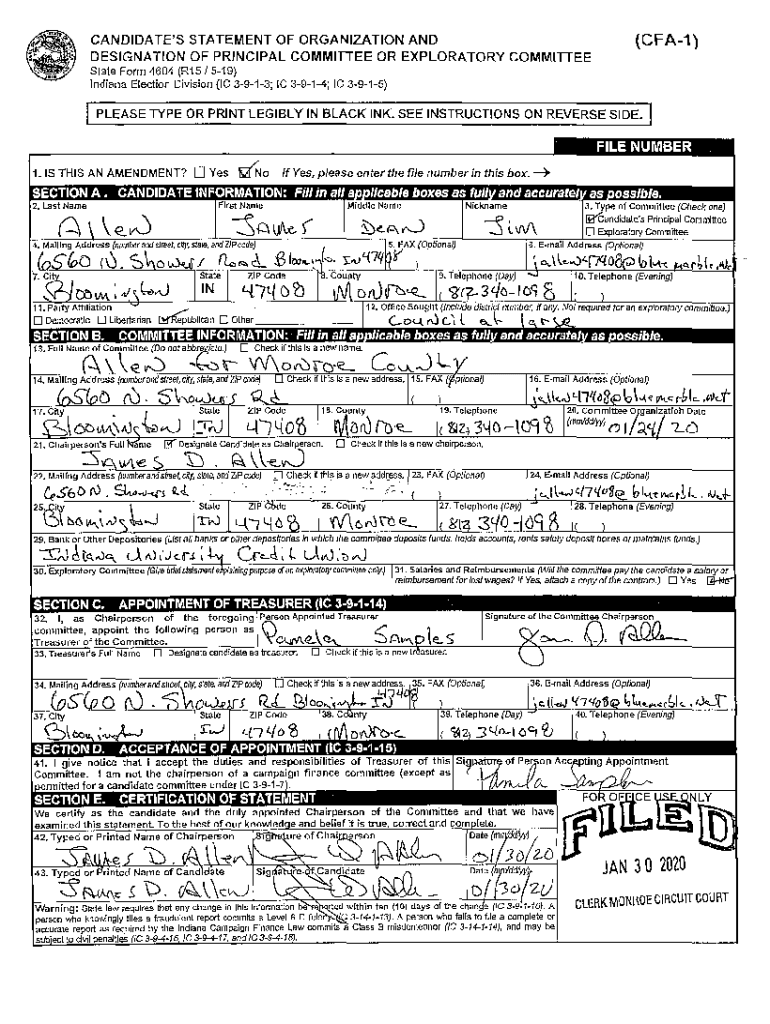 CANDIDATE'S STATEMENT OF ORGANIZATION AND (CFA-1)
DESIGNATION OF PRINCIPAL COMMITTEE OR EXPLORATORY COMMITTEE
State Form 4604 (R15 / 5-19)
Indiana Election Division (IC 3-9-1-3; IC 3-9-1-4; IC 3-9-1-5)
PLEASE TYPE OR PRINT LEGIBLY IN BLACK INK. SEE INSTRUCTIONS ON REVERSE SIDE.
FILE NUMBER
1. IS THIS AN AMENDMENT? ☐ Yes ☑ No If Yes, please enter the file number in this box. →
SECTION A. CANDIDATE INFORMATION: Fill in all applicable boxes as fully and accurately as possible.
2. Last Name First Name Middle Name Nickname 3. Type of Committee (Check one)
Allen James Dean Jim ☑ Candidate's Principal Committee
☐ Exploratory Committee
4. Mailing Address (number and street, city, state, and ZIP code) 5. FAX (Optional) 6. E-mail Address (Optional)
6560 N. Showers Road IN 47408 jallen47408@bluemarble.net
7. City State ZIP Code 8. County 9. Telephone (Day) 10. Telephone (Evening)
Bloomington IN 47408 Monroe (812-340-1098 ( )
11. Party Affiliation 12. Office Sought (Include district number, if any. Not required for an exploratory committee.)
☐ Democratic ☐ Libertarian ☑ Republican ☐ Other Council at large
SECTION B. COMMITTEE INFORMATION: Fill in all applicable boxes as fully and accurately as possible.
13. Full Name of Committee (Do not abbreviate.) ☐ Check if this is a new name.
Allen for Monroe County
14. Mailing Address (number and street, city, state, and ZIP code) ☐ Check if this is a new address. 15. FAX (Optional) 16. E-mail Address (Optional)
6560 N. Showers Rd ( ) jallen47408@bluemarble.net
17. City State ZIP Code 18. County 19. Telephone 20. Committee Organization Date
Bloomington IN 47408 Monroe (812) 340-1098 (mm/dd/yy) 01/24/20
21. Chairperson's Full Name ☑ Designate Candidate as Chairperson. ☐ Check if this is a new chairperson.
James D. Allen
22. Mailing Address (number and street, city, state, and ZIP code) ☐ Check if this is a new address. 23. FAX (Optional) 24. E-mail Address (Optional)
6560 N. Showers Rd ( ) jallen47408@ .net
25. City State ZIP Code 26. County 27. Telephone (Day) 28. Telephone (Evening)
Bloomington IN 47408 Monroe (812 340-1098 ( )
29. Bank or Other Depositories (List all banks or other depositories in which the committee deposits funds, holds accounts, rents safety deposit boxes or maintains funds.)
Indiana University Credit Union
30. Exploratory Committee (Give brief statement explaining purpose of an exploratory committee only.) 31. Salaries and Reimbursements (Will the committee pay the candidate a salary or
reimbursement for lost wages? If Yes, attach a copy of the contract.) ☐ Yes ☑ No
SECTION C. APPOINTMENT OF TREASURER (IC 3-9-1-14)
32. I, as Chairperson of the foregoing Person Appointed Treasurer Signature of the Committee Chairperson
committee, appoint the following person as Pamela Samples
Treasurer of the Committee.
33. Treasurer's Full Name ☐ Designate candidate as treasurer. ☐ Check if this is a new treasurer.
34. Mailing Address (number and street, city, state, and ZIP code) ☐ Check if this is a new address. 35. FAX (Optional) 36. E-mail Address (Optional)
6560 N. Showers Rd IN 47408 jallen47408@bluemarble.net
37. City State ZIP Code 38. County 39. Telephone (Day) 40. Telephone (Evening)
Bloomington IN 47408 Monroe (812) 340-1098 ( )
SECTION D. ACCEPTANCE OF APPOINTMENT (IC 3-9-1-15)
41. I give notice that I accept the duties and responsibilities of Treasurer of this Signature of Person Accepting Appointment
Committee. I am not the chairperson of a campaign finance committee (except as
permitted for a candidate committee under IC 3-9-1-7). Pamela Samples
SECTION E. CERTIFICATION OF STATEMENT FOR OFFICE USE ONLY
We certify as the candidate and the duly appointed Chairperson of the Committee and that we have
examined this statement. To the best of our knowledge and belief it is true, correct and complete.
42. Typed or Printed Name of Chairperson Signature of Chairperson Date (mm/dd/yy)
James D. Allen 01/30/20
43. Typed or Printed Name of Candidate Signature of Candidate Date (mm/dd/yy)
James D. Allen 01/30/20
FILED
JAN 30 2020
CLERK MONROE CIRCUIT COURT
Warning: State law requires that any change in this information be reported within ten (10) days of the change (IC 3-9-1-10). A
person who knowingly files a fraudulent report commits a Level 6 felony (IC 3-14-1-13). A person who fails to file a complete or
accurate report as required by the Indiana Campaign Finance Law commits a Class B misdemeanor (IC 3-14-1-14), and may be
subject to civil penalties (IC 3-9-4-16, IC 3-9-4-17, and IC 3-9-4-18).